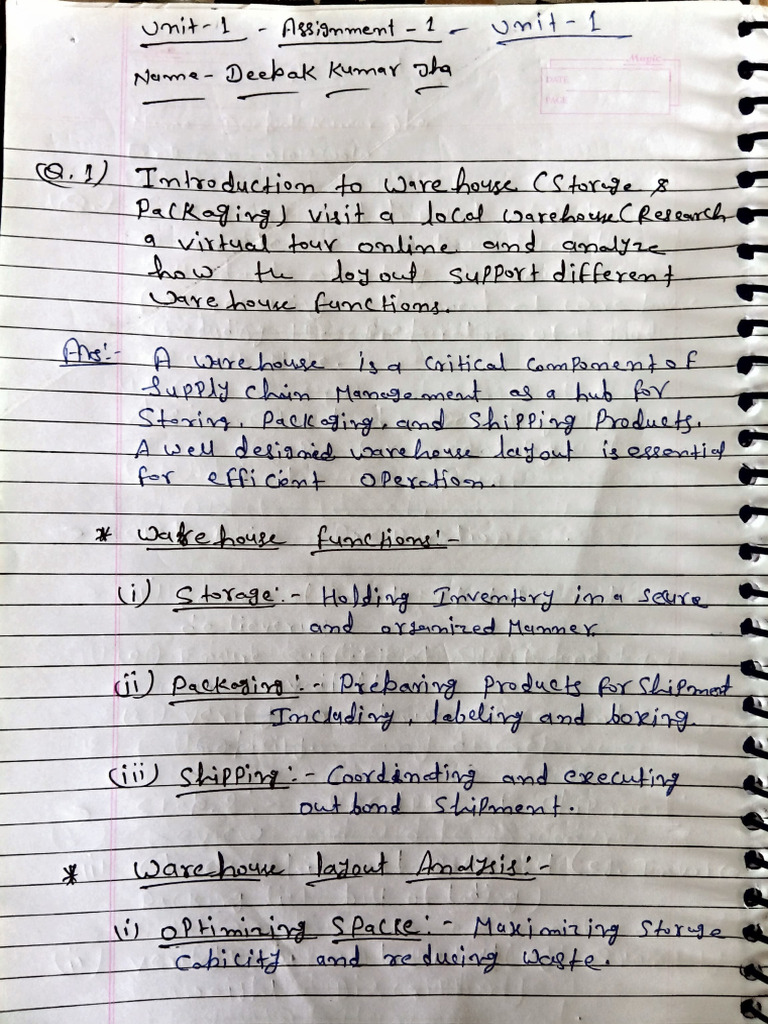 Unit-1 - Assignment-1 - Unit-1
Name - Deepak Kumar Jha
Magic
DATE
PAGE
(Q.1) Introduction to warehouse (Storage &
Packaging) visit a local warehouse (Research
a virtual tour online and analyze
how the layout support different
warehouse functions.
Ans:- A warehouse is a critical component of
Supply chain Management as a hub for
Storing, Packaging, and Shipping Products.
A well designed warehouse layout is essential
for efficient operation.
* Warehouse functions:-
(i) Storage:- Holding Inventory in a secure
and organized Manner.
(ii) Packaging:- Preparing Products for Shipment
Including, labeling and boxing.
(iii) Shipping:- Coordinating and executing
outbond Shipment.
* Warehouse layout Analysis:-
(i) Optimizing Spacre:- Maximizing Storage
Capicity and reducing waste.